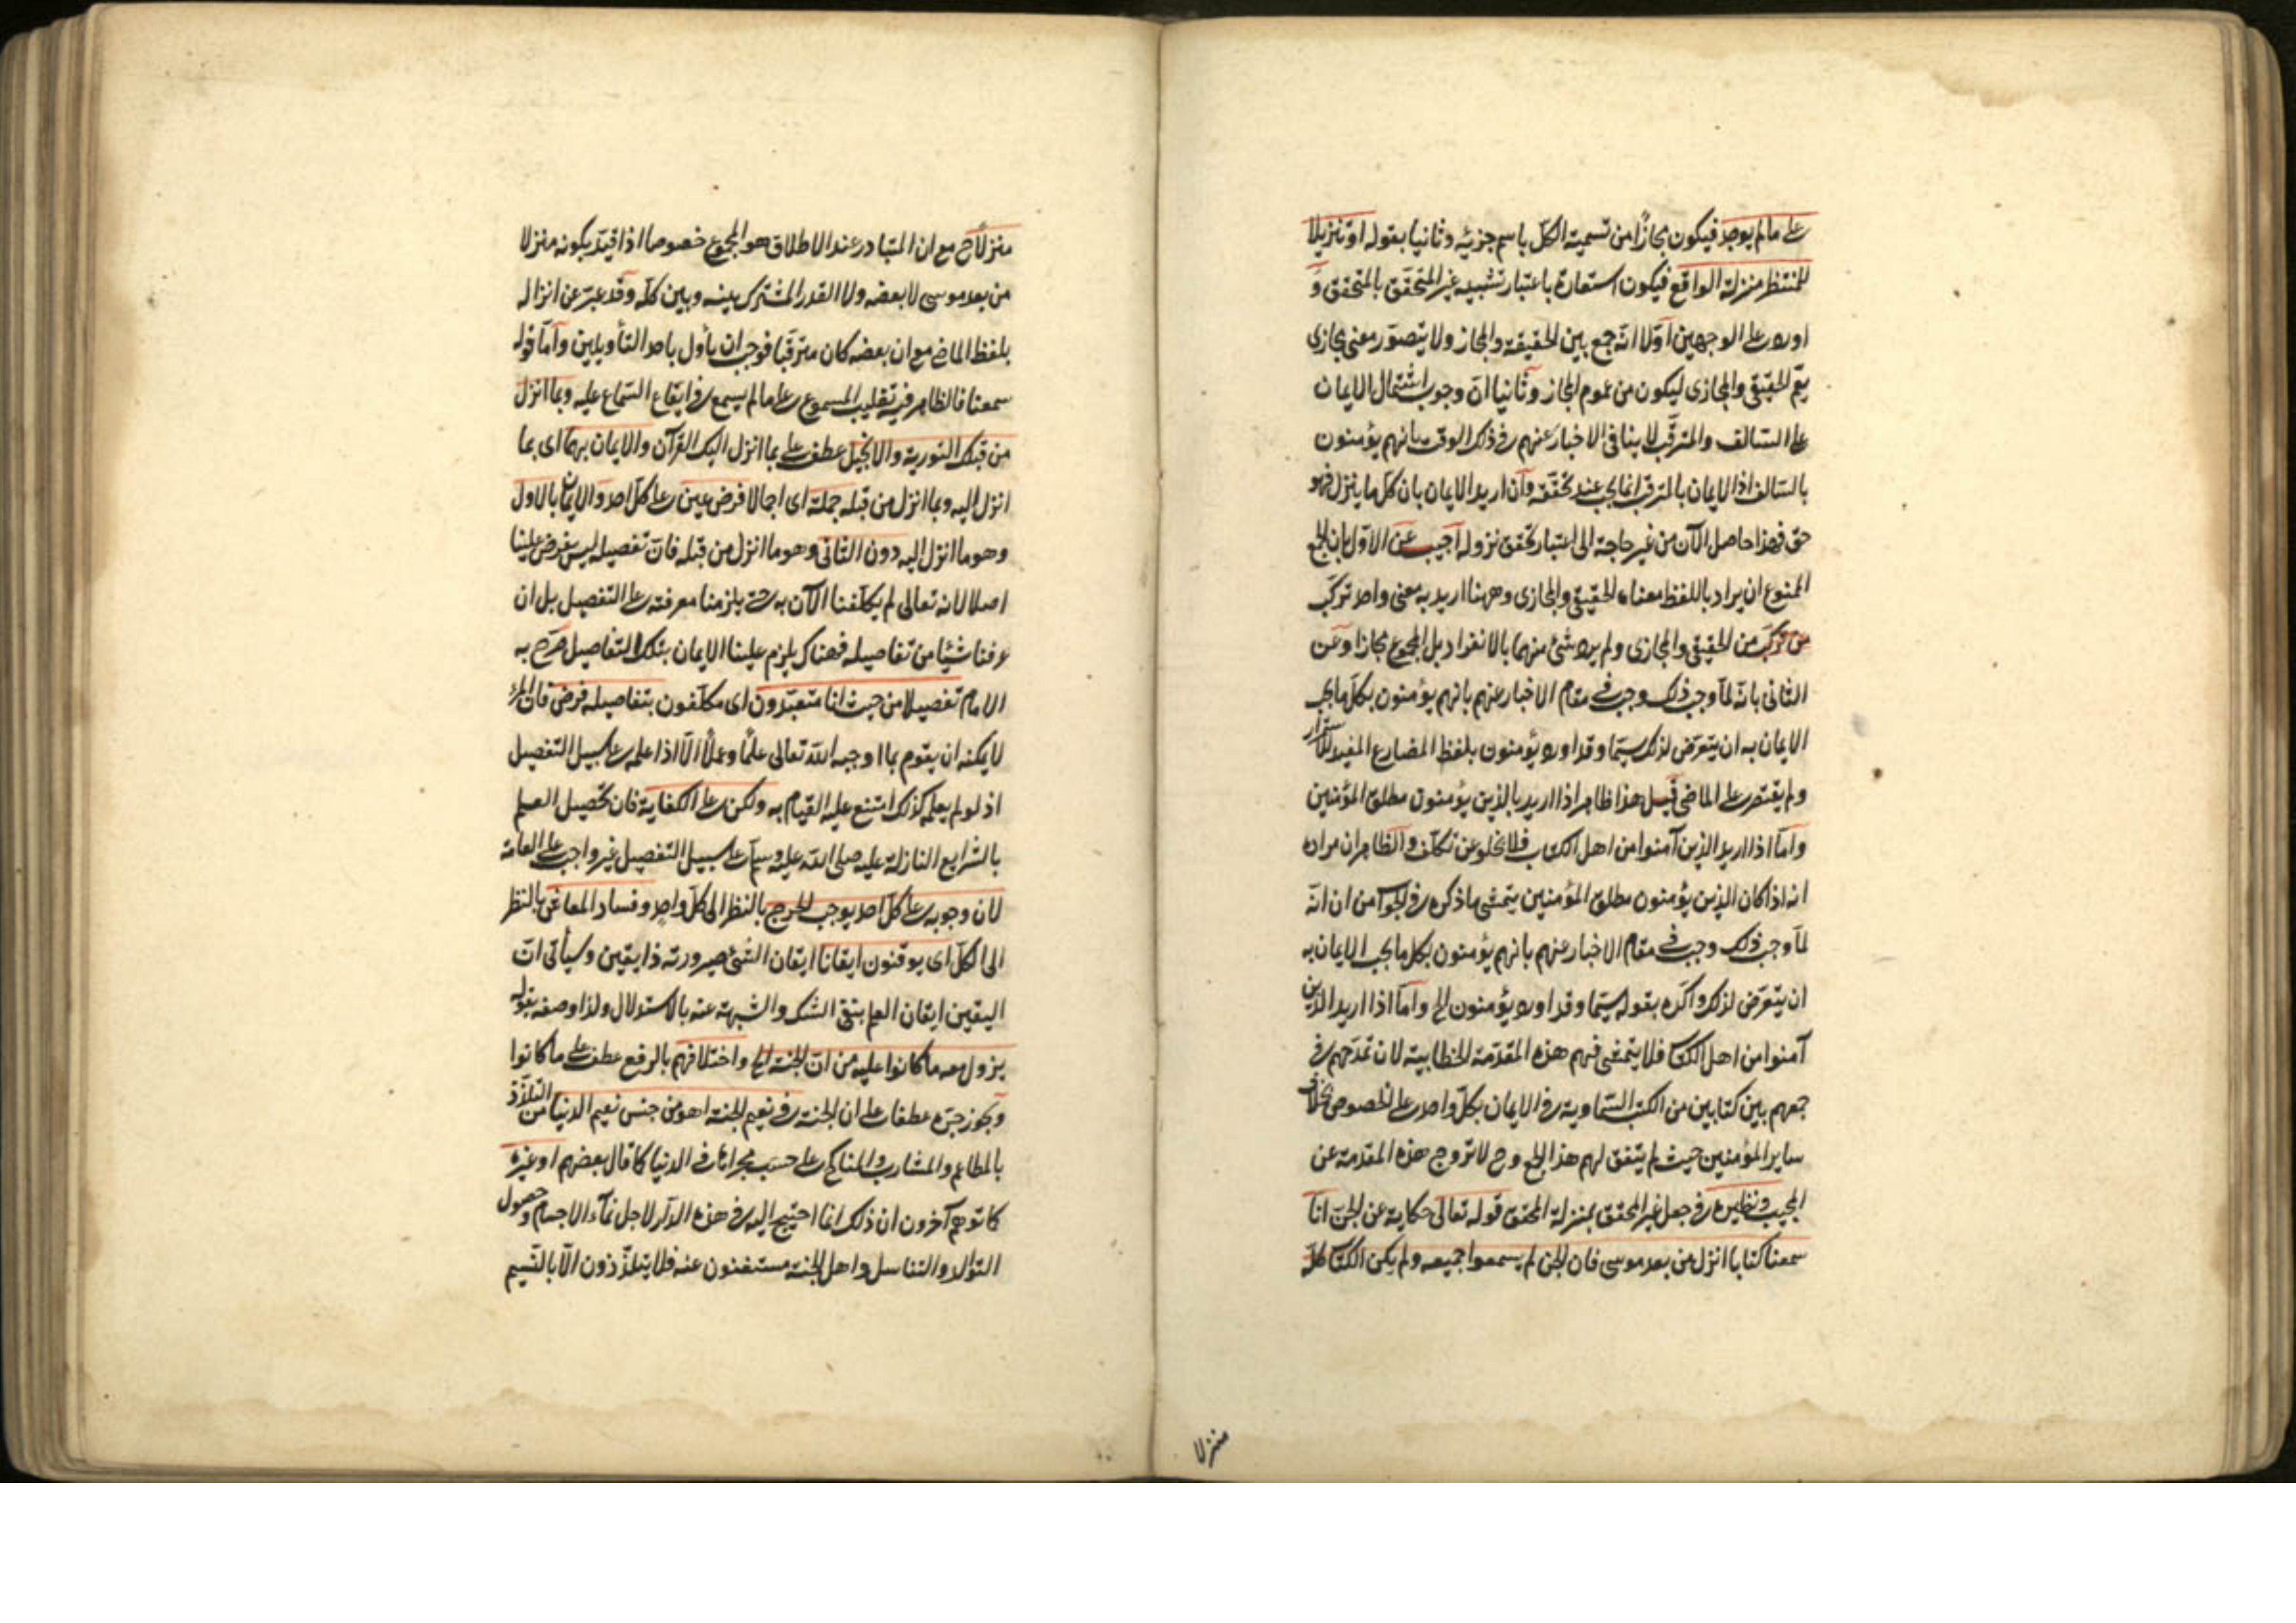 على ما لم يوجد فيكون مجازًا من تسمية الكلّ باسم جزئه وثانيا بقوله او تنزيلا
للمنتظر منزلة الواقع فيكون استعارة باعتبار تشبيه غير المتحقّق بالمتحقق و
اورد على الوجهين اوّلا انّه جمع بين الحقيقة والمجاز ولا يتصوّر معنى مجازى
يعمّ الحقيقى والمجازى ليكون من عموم المجاز وثانيا انّ وجوب اشتمال الايمان
على السّالف والمترقّب لا ينافى الاخبار عنهم فى ذلك الوقت بانهم يؤمنون
بالسّالف اذ الايمان بالمترقب انما يجب عند تحقّقه وان اريد الايمان بان كلّ ما ينزل فهو
حق فهذا حاصل الآن من غير حاجة الى اعتبار تحقق نزوله اجيب عن الاوّل بان الجمع
الممنوع ان يراد باللفظ معناه الحقيقى والمجازى وههنا اريد به معنى واحد تركّب
من تركّب من الحقيقى والمجازى ولم يرد شئ منهما بالانفراد بل المجموع مجازا وعن
الثانى بانّه لمّا وجب ذلك وجب فى مقام الاخبار عنهم بانهم يؤمنون بكلّ ما يجب
الايمان به ان يتعرّض لذلك سيّما وقد اورد يؤمنون بلفظ المضارع المفيد للاستمرار
ولم يقتصر على الماضى قيل هذا ظاهر اذا اريد بالذين يؤمنون مطلق المؤمنين
وامّا اذا اريد الذين آمنوا من اهل الكتاب فلا يخلو عن تكلّف والظاهر ان مراده
انه اذا كان الذين يؤمنون مطلق المؤمنين يتمشى ما ذكره فى الجواب من ان انّه
لمّا وجب ذلك وجب فى مقام الاخبار عنهم بانهم يؤمنون بكل ما يجب الايمان به
ان يتعرّض لذلك واكّده بقوله سيّما وقد اورد يؤمنون الخ وامّا اذا اريد الذين
آمنوا من اهل الكتاب فلا يتمشى فيهم هذه المقدّمة الخطابية لان تمدّحهم فى
جمعهم بين كتابين من الكتب السّماوية فى الايمان بكلّ واحد على الخصوص بخلاف
ساير المؤمنين حيث لم يتفق لهم هذا الجمع وح لا تروج هذه المقدمة عن
المجيب ونظيره فى جعل غير المحقق بمنزلة المحقق قوله تعالى حكاية عن الجنّ انّا
سمعنا كتابا انزل من بعد موسى فان الجن لم يسمعوا جميعه ولم يكن الكتاب كلّه
منزلا
منزلًا ح مع ان المتبادر عند الاطلاق هو المجموع خصوصا اذا قيّد بكونه منزلا
من بعد موسى لا بعضه ولا القدر المشترك بينه وبين كلّه وقد عبّر عن انزاله
بلفظ الماضى مع ان بعضه كان مترقّبا فوجب ان يأول باحد التأويلين وامّا قوله
سمعنا فالظاهر فيه تغليب المسموع على ما لم يسمع فى ايقاع السّماع عليه وبما انزل
من قبلك التورية والانجيل عطف على بما انزل اليك القرآن والايمان بهما اى بما
انزل اليه وبما انزل من قبله جملة اى اجمالا فرض عين على كلّ احد والايمان بالاول
وهو ما انزل اليه دون الثانى وهو ما انزل من قبله فانّ تفصيله ليس بفرض علينا
اصلا لانه تعالى لم يكلّفنا الآن به حتى يلزمنا معرفته على التفصيل بل ان
عرفنا شيئا من تفاصيله فهناك يلزم علينا الايمان بتلك التفاصيل صرّح به
الامام تفصيلا من حيث انا متعبّدون اى مكلّفون بتفاصيله فرض فان المرء
لا يمكنه ان يقوم بما اوجبه اللّه تعالى علمًا وعملًا الّا اذا علمه على سبيل التفصيل
اذ لو لم يعلمه كذلك امتنع عليه القيام به ولكن على الكفاية فان تحصيل العلم
بالشرايع النازلة عليه صلى اللّه عليه وسلّم على سبيل التفصيل غير واجب على العامة
لان وجوبه على كلّ احد يوجب الحرج بالنظر الى كلّ واحد وفساد المعاش بالنظر
الى الكلّ اى يوقنون ايقانا ايقان الشئ صيرورته ذا يقين وسيأتى انّ
اليقين ايقان العلم بنفى الشك والشبهة عنه بالاستدلال ولذا وصفه بقوله
يزول معه ما كانوا عليه من انّ الجنة الخ واختلافهم بالرفع عطف على ما كانوا
ويجوز جرّه عطفا على ان الجنة فى نعيم الجنة اهو من جنس نعيم الدنيا من التلذّذ
بالمطاعم والمشارب والمناكح على حسب مجراها فى الدنيا كما قال بعضهم او غيره
كما توهم آخرون ان ذلك انما احتيج اليه فى هذه الدّار لاجل نمآء الاجسام وحصول
التوالد والتناسل واهل الجنة مستغنون عنه فلا يتلذّذون الّا بالنّسيم